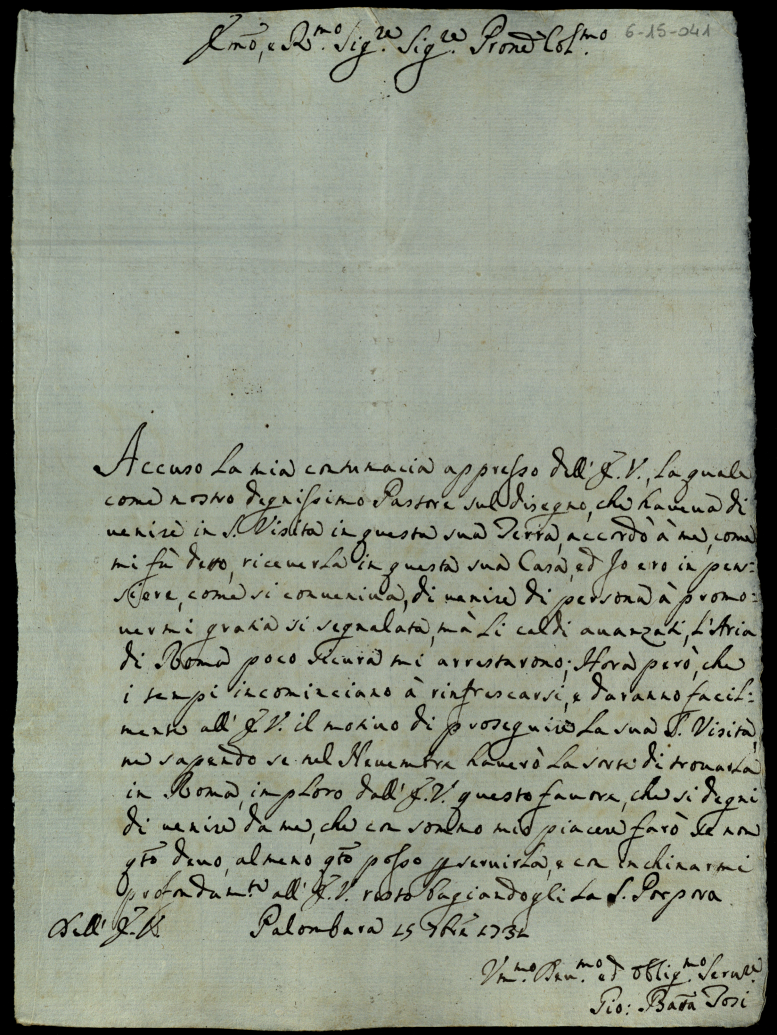 Em̃o, e R.mo Sig.re Sig.re Prone Col.mo 6-15-041
Accuso la mia contumacia appresso dell' E.V., la quale
come nostro degnissimo Pastore sul disegno, che haveva di
venire in S. Visita in questa sua Terra, accordò à me, come
mi fù detto, riceverla in questa sua Casa, ed Io ero in pen=
siere, come si conveniva, di venire di persona à promo=
vermi gratia si segnalata, mà li caldi avanzati, l'Aria
di Roma poco sicura mi arrestarono; Hora però, che
i tempi incominciano à rinfrescarsi, e daranno facil=
mente all' E.V. il motivo di proseguire la sua S. Visita,
ne sapendo se nel Novembre haverò la sorte di trovarla
in Roma, imploro dall' E.V. questo favore, che si degni
di venire da me, che con sommo mio piacere farò se non
qto devo, almeno qto posso p servirla, e con inchinarmi
profondam.te all' E.V. resto bagiandogli la S. Porpora
Dell' E.V. Palombara 15 7bre 1732
Vm.mo Dev.mo ed oblig.mo Serv.re
Gio: Batta Tosi